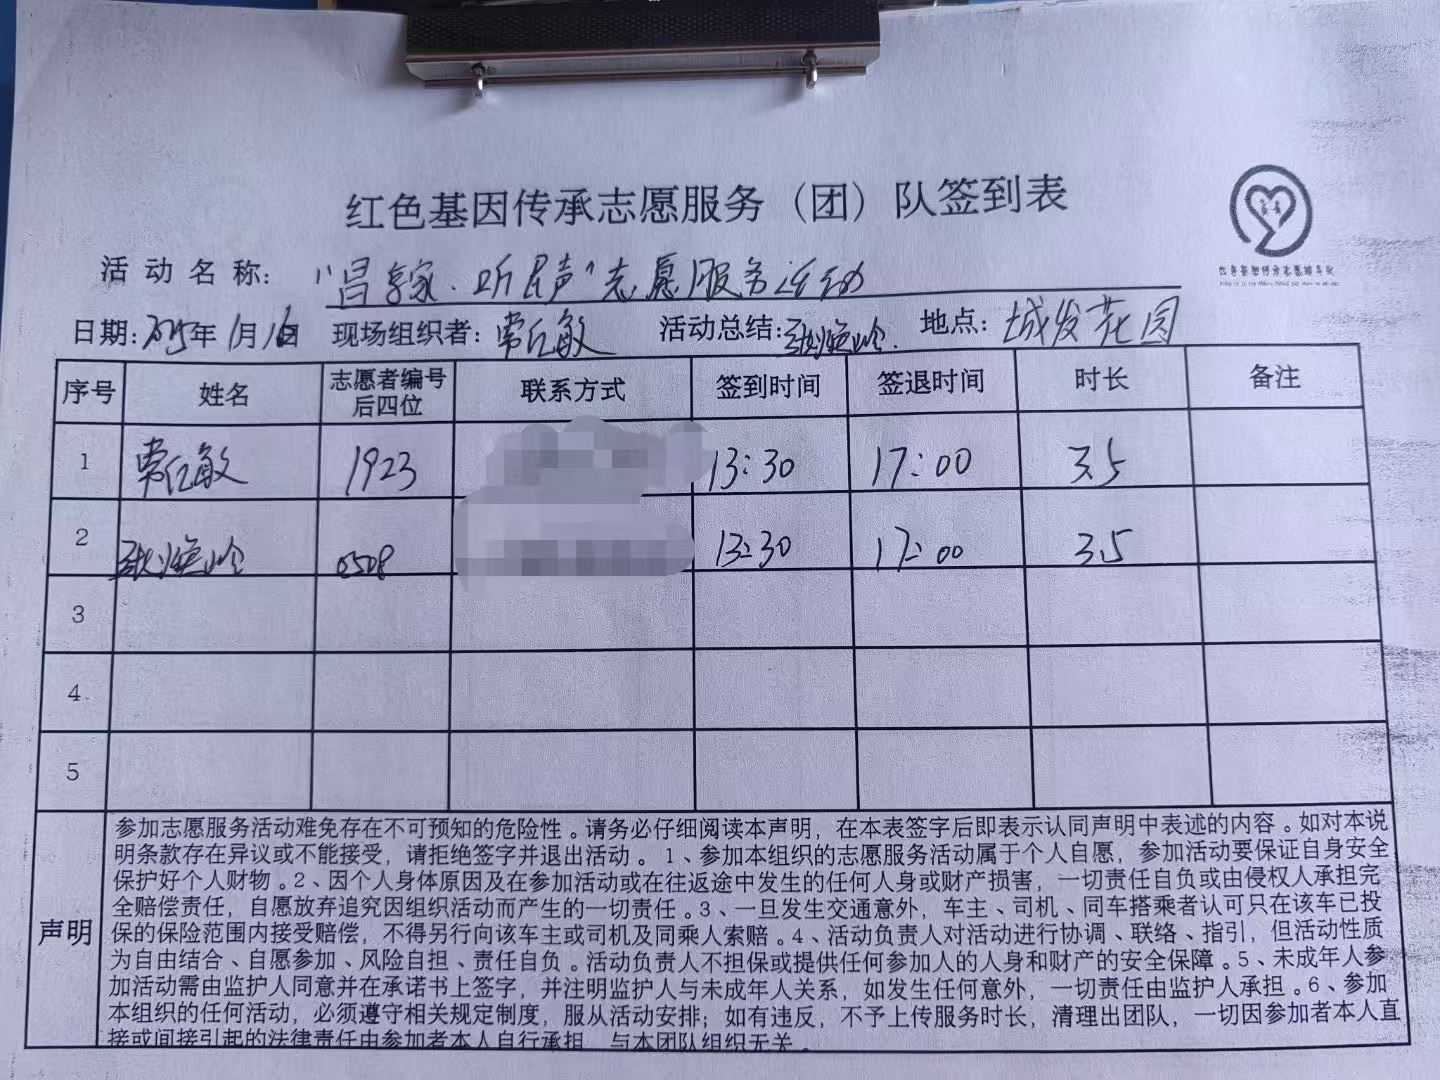 红色基因传承志愿服务（团）队签到表
活动名称：“冒享家·听民声”志愿服务活动
日期：2025年1月16日 现场组织者：常仁敏 活动总结： 地点：城发花园
序号 姓名 志愿者编号后四位 联系方式 签到时间 签退时间 时长 备注
1 常仁敏 1923 13:30 17:00 3.5
2 0508 13:30 17:00 3.5
3
4
5
声明
参加志愿服务活动难免存在不可预知的危险性。请务必仔细阅读本声明，在本表签字后即表示认同声明中表述的内容。如对本说
明条款存在异议或不能接受，请拒绝签字并退出活动。1、参加本组织的志愿服务活动属于个人自愿，参加活动要保证自身安全
保护好个人财物。2、因个人身体原因及在参加活动或在往返途中发生的任何人身或财产损害，一切责任自负或由侵权人承担完
全赔偿责任，自愿放弃追究因组织活动而产生的一切责任。3、一旦发生交通意外，车主、司机、同车搭乘者认可只在该车已投
保的保险范围内接受赔偿，不得另行向该车主或司机及同乘人索赔。4、活动负责人对活动进行协调、联络、指引，但活动性质
为自由结合、自愿参加、风险自担、责任自负。活动负责人不担保或提供任何参加人的人身和财产的安全保障。5、未成年人参
加活动需由监护人同意并在承诺书上签字，并注明监护人与未成年人关系，如发生任何意外，一切责任由监护人承担。6、参加
本组织的任何活动，必须遵守相关规定制度，服从活动安排；如有违反，不予上传服务时长，清理出团队，一切因参加者本人直
接或间接引起的法律责任由参加者本人自行承担，与本团队组织无关。